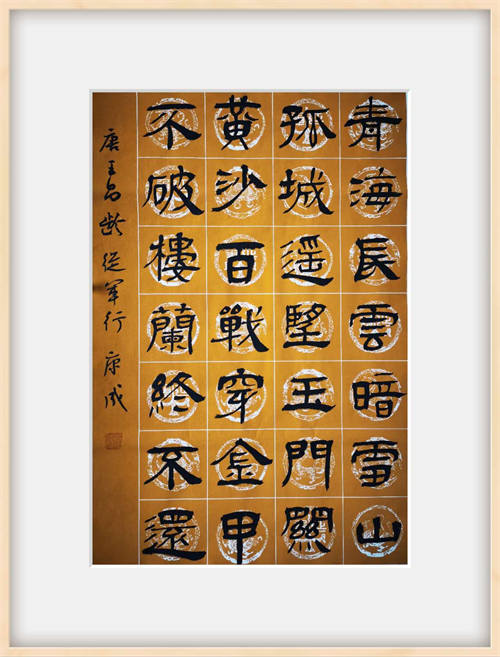 青海長雲暗雪山
孤城遥望玉門關
黄沙百戰穿金甲
不破樓蘭終不還
唐王昌齡從軍行 康成